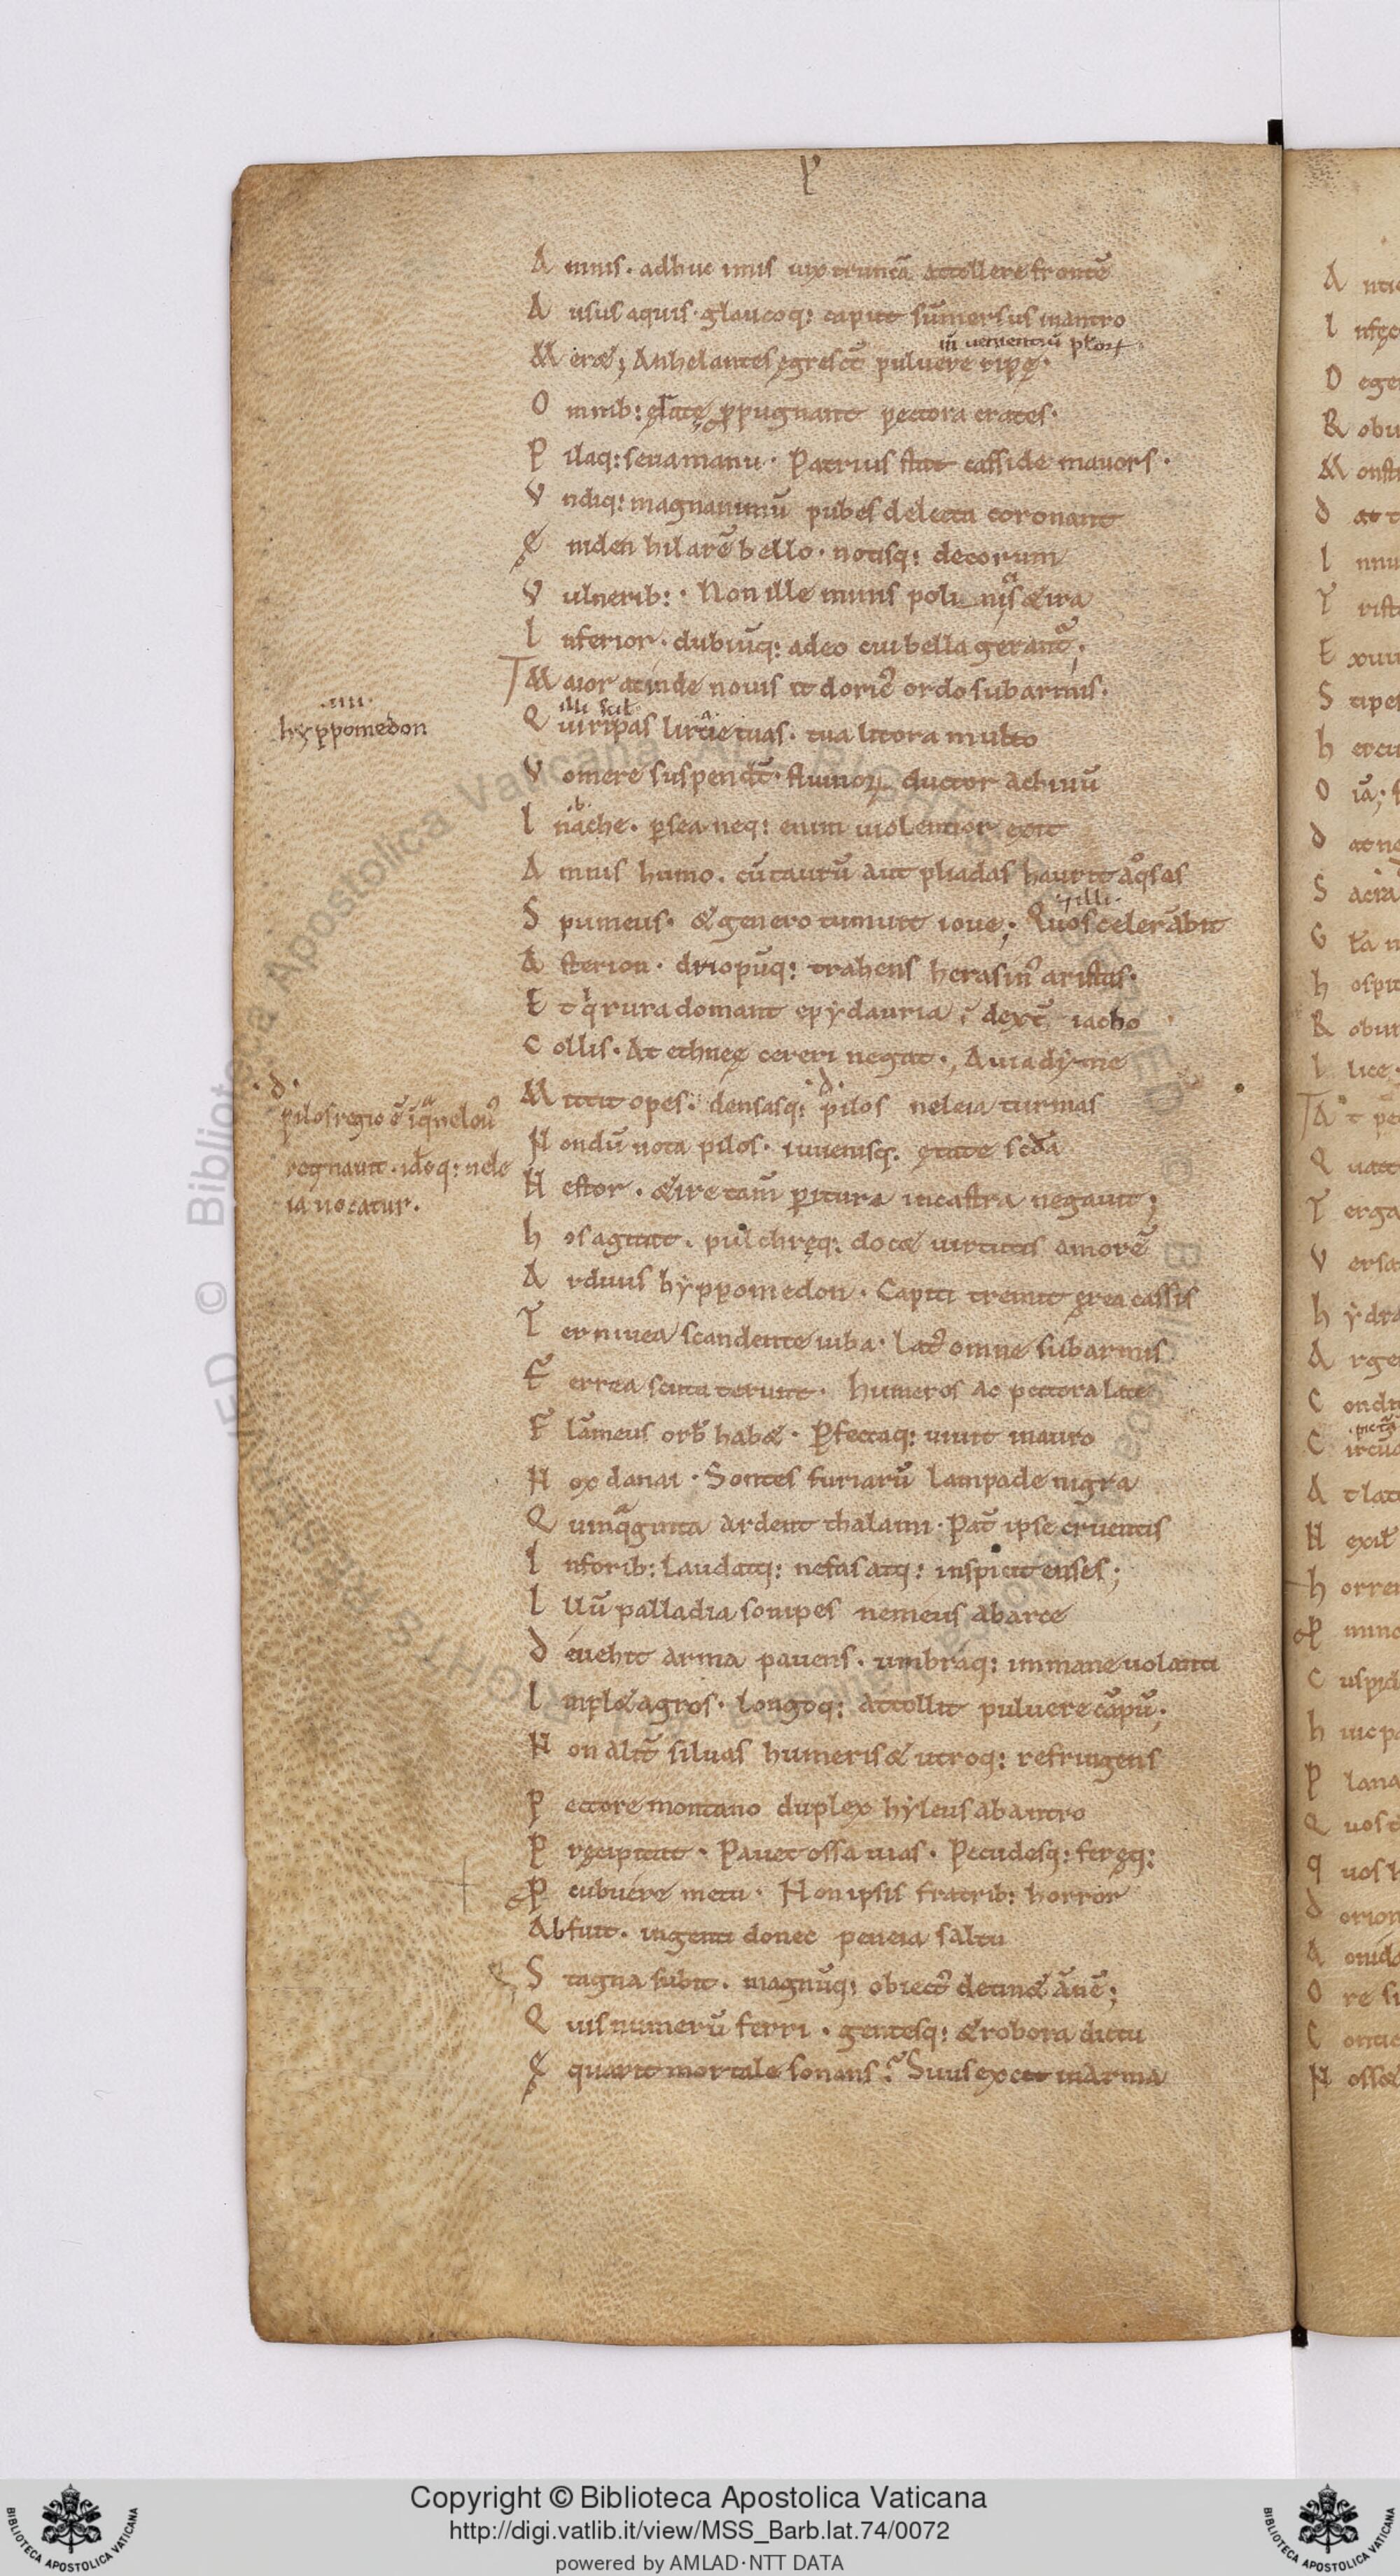 A mnis. adhuc imis uix truncā attollere frontē
A usus aquis. glaucoq: caput sūmersus in antro
in uenientiū
M eret; Anhelantes ęgresct̄ puluere ripę.
O mnib: ęratę ꝓpugnant pectora crates.
P ilaq: seua manu. Patrius stat casside mauors.
V ndiq: magnanimū pubes delecta coronant
Ę niden hilarē bello. notisq: decorum
V ulnerib: . Non ille minis & ira
I nferior. dubiūq: adeo cui bella gerant̄;
M aior at inde nouis it doriē ordo sub armis.
.IIII.
hyppomedon
illi scil
Q ui ripas lircie tuas. tua litora multo
V omere suspendt̄. fluuioꝝ ductor achiuū
I nache. ꝑsea neq: enim uiolentior exit
A mnis humo. cū taurū aut pliadas hausit aq̊sas
.i. illi.
S pumeus. & genero tumuit ioue; Quos celer ābit
A sterion. driopūq: trahens herasin᷒ aristas.
E t qͥ rura domant epẏdauria; dext̄ iacho
C ollis. At ethneę cereri negat. , Auia dẏme
.d.
M ittit opes. densasq: pilos neleia turmas
.d.
pilos regio ē ī qͣ neleu᷒
regnauit. idoq: nele
ia uocatur.
N ondū nota pilos. iuuenisq: ętate scd̄a
N estor. & ire tam̄ ꝑitura in castra negauit;
h os agitat. pulchręq: doc& uirtutis amorē
A rduus hẏppomedon. Capiti tremit ęrea cassis
T er niuea scandente iuba. lat᷒ omne sub armis
F errea scuta terunt. humeros ac pectora late
F lāmeus orb̄ hab&. ꝑfectaq: uiuit in auro
N ox danai. Sontes furiarū lampade nigra
Q uinqͣginta ardent thalami. Pat̄ ipse cruentis
I n forib: laudatq: nefas atq: inspicit enses;
I llū palladia sonipes nemeus ab arce
D euehit arma pauens. umbraq: immane uolanti
I mpl& agros. longoq: attollit puluere cāpū;
N on alit̄ siluas humeris & utroq: refringens
P ectore montano duplex hẏleus ab antro
P ręcipitat. Pauet ossa uias. Pecudesq: feręq:
P cubuere metu. Non ipsis fratrib: horror
Abfuit. ingenti donec peneia saltu
S tagna subit. magnūq: obiect᷒ detin& ānē;
Q uis numerū ferri. gentesq: & robora dictu
Ę quarit mortale sonans? Suus excit in arma
Copyright © Biblioteca Apostolica Vaticana
http://digi.vatlib.it/view/MSS_Barb.lat.74/0072
powered by AMLAD·NTT DATA